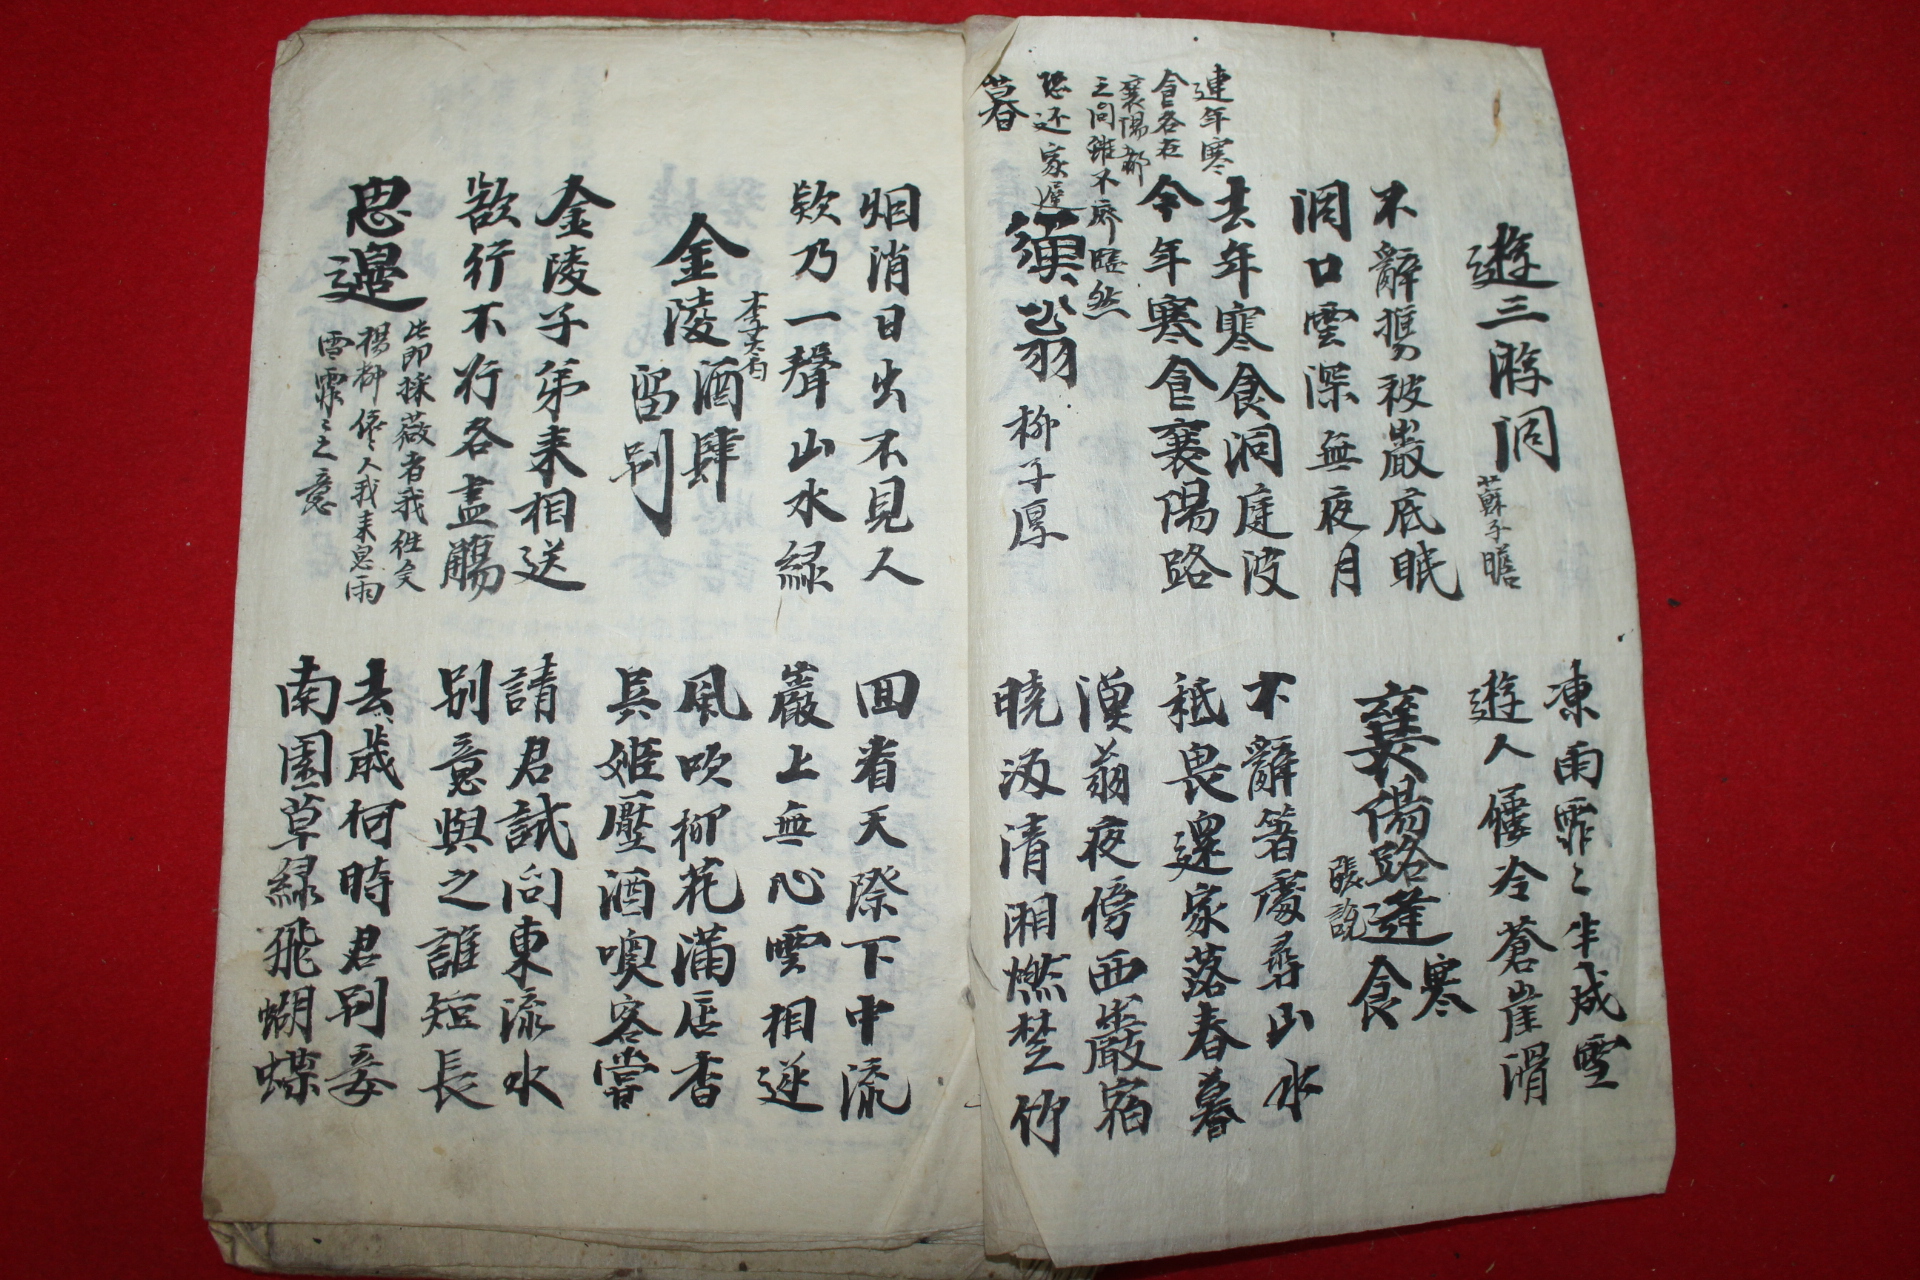 遊三游洞
蘇子瞻
凍雨霏〻半成雪
遊人屨冷蒼崖滑
不辭携被巖底眠
洞口雲深無夜月
襄陽路逢寒食
張說
連年寒
食各在
襄陽都
之间雖不
恐还家遲
暮
去年寒食洞庭波
今年寒食襄陽路
不辭著處尋山水
秖畏還家落春暮
漁翁
柳子厚
漁翁夜傍西巖宿
曉汲清湘燃楚竹
烟消日出不見人
欸乃一聲山水綠
回看天際下中流
巖上無心雲相逐
金陵酒肆
留別
李太白
風吹柳花滿店香
吳姬壓酒喚客嘗
金陵子弟來相送
欲行不行各盡觴
請君試向東流水
別意與之誰短長
思邊
此即採薇者我往矣
楊柳依〻我来思雨
雪霏〻之意
去歲何時君別妾
南園草綠飛蝴蝶